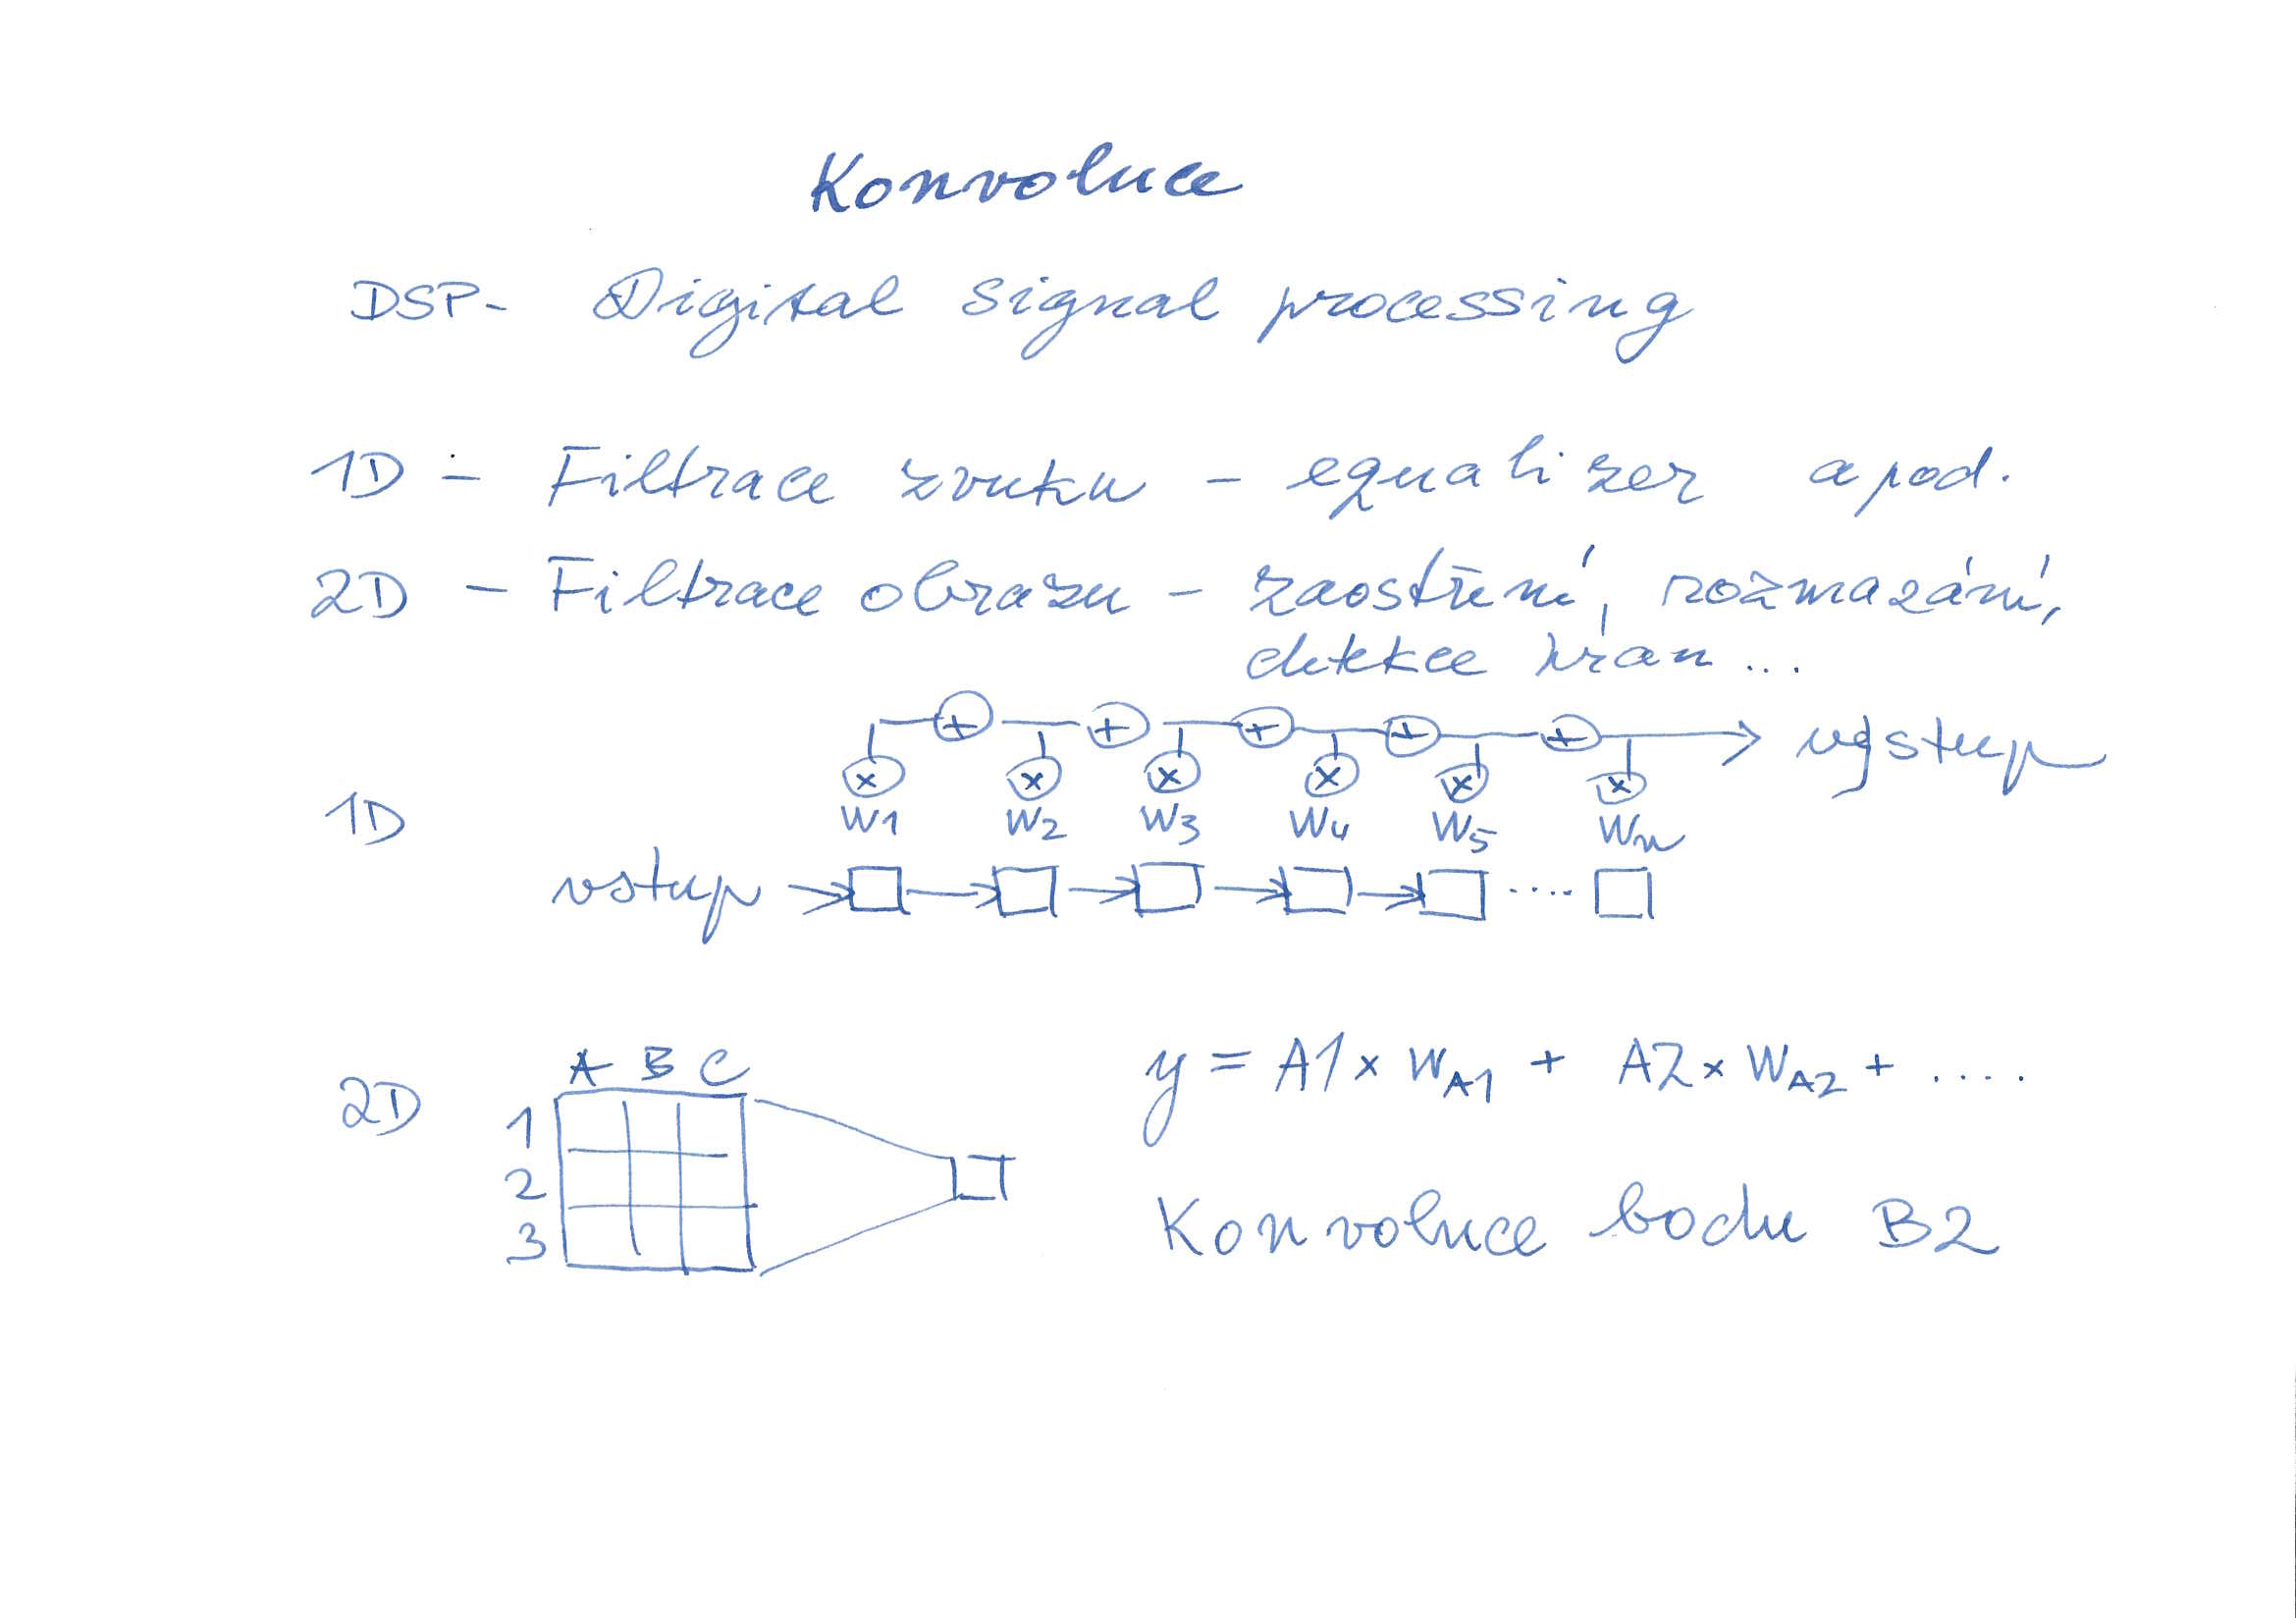 Konvoluce
DSP- Digital signal processing
1D - Filtrace zvuku - equalizer apod.
2D - Filtrace obrazu - zaostření, rozmazání,
detekce hran ...
+ + + + + → výstup
x x x x x x
1D
W1 W2 W3 W4 W5 Wn
vstup ....
A B C
2D
y = A1 x WA1 + A2 x WA2 + ....
1
2
3
Konvoluce bodu B2